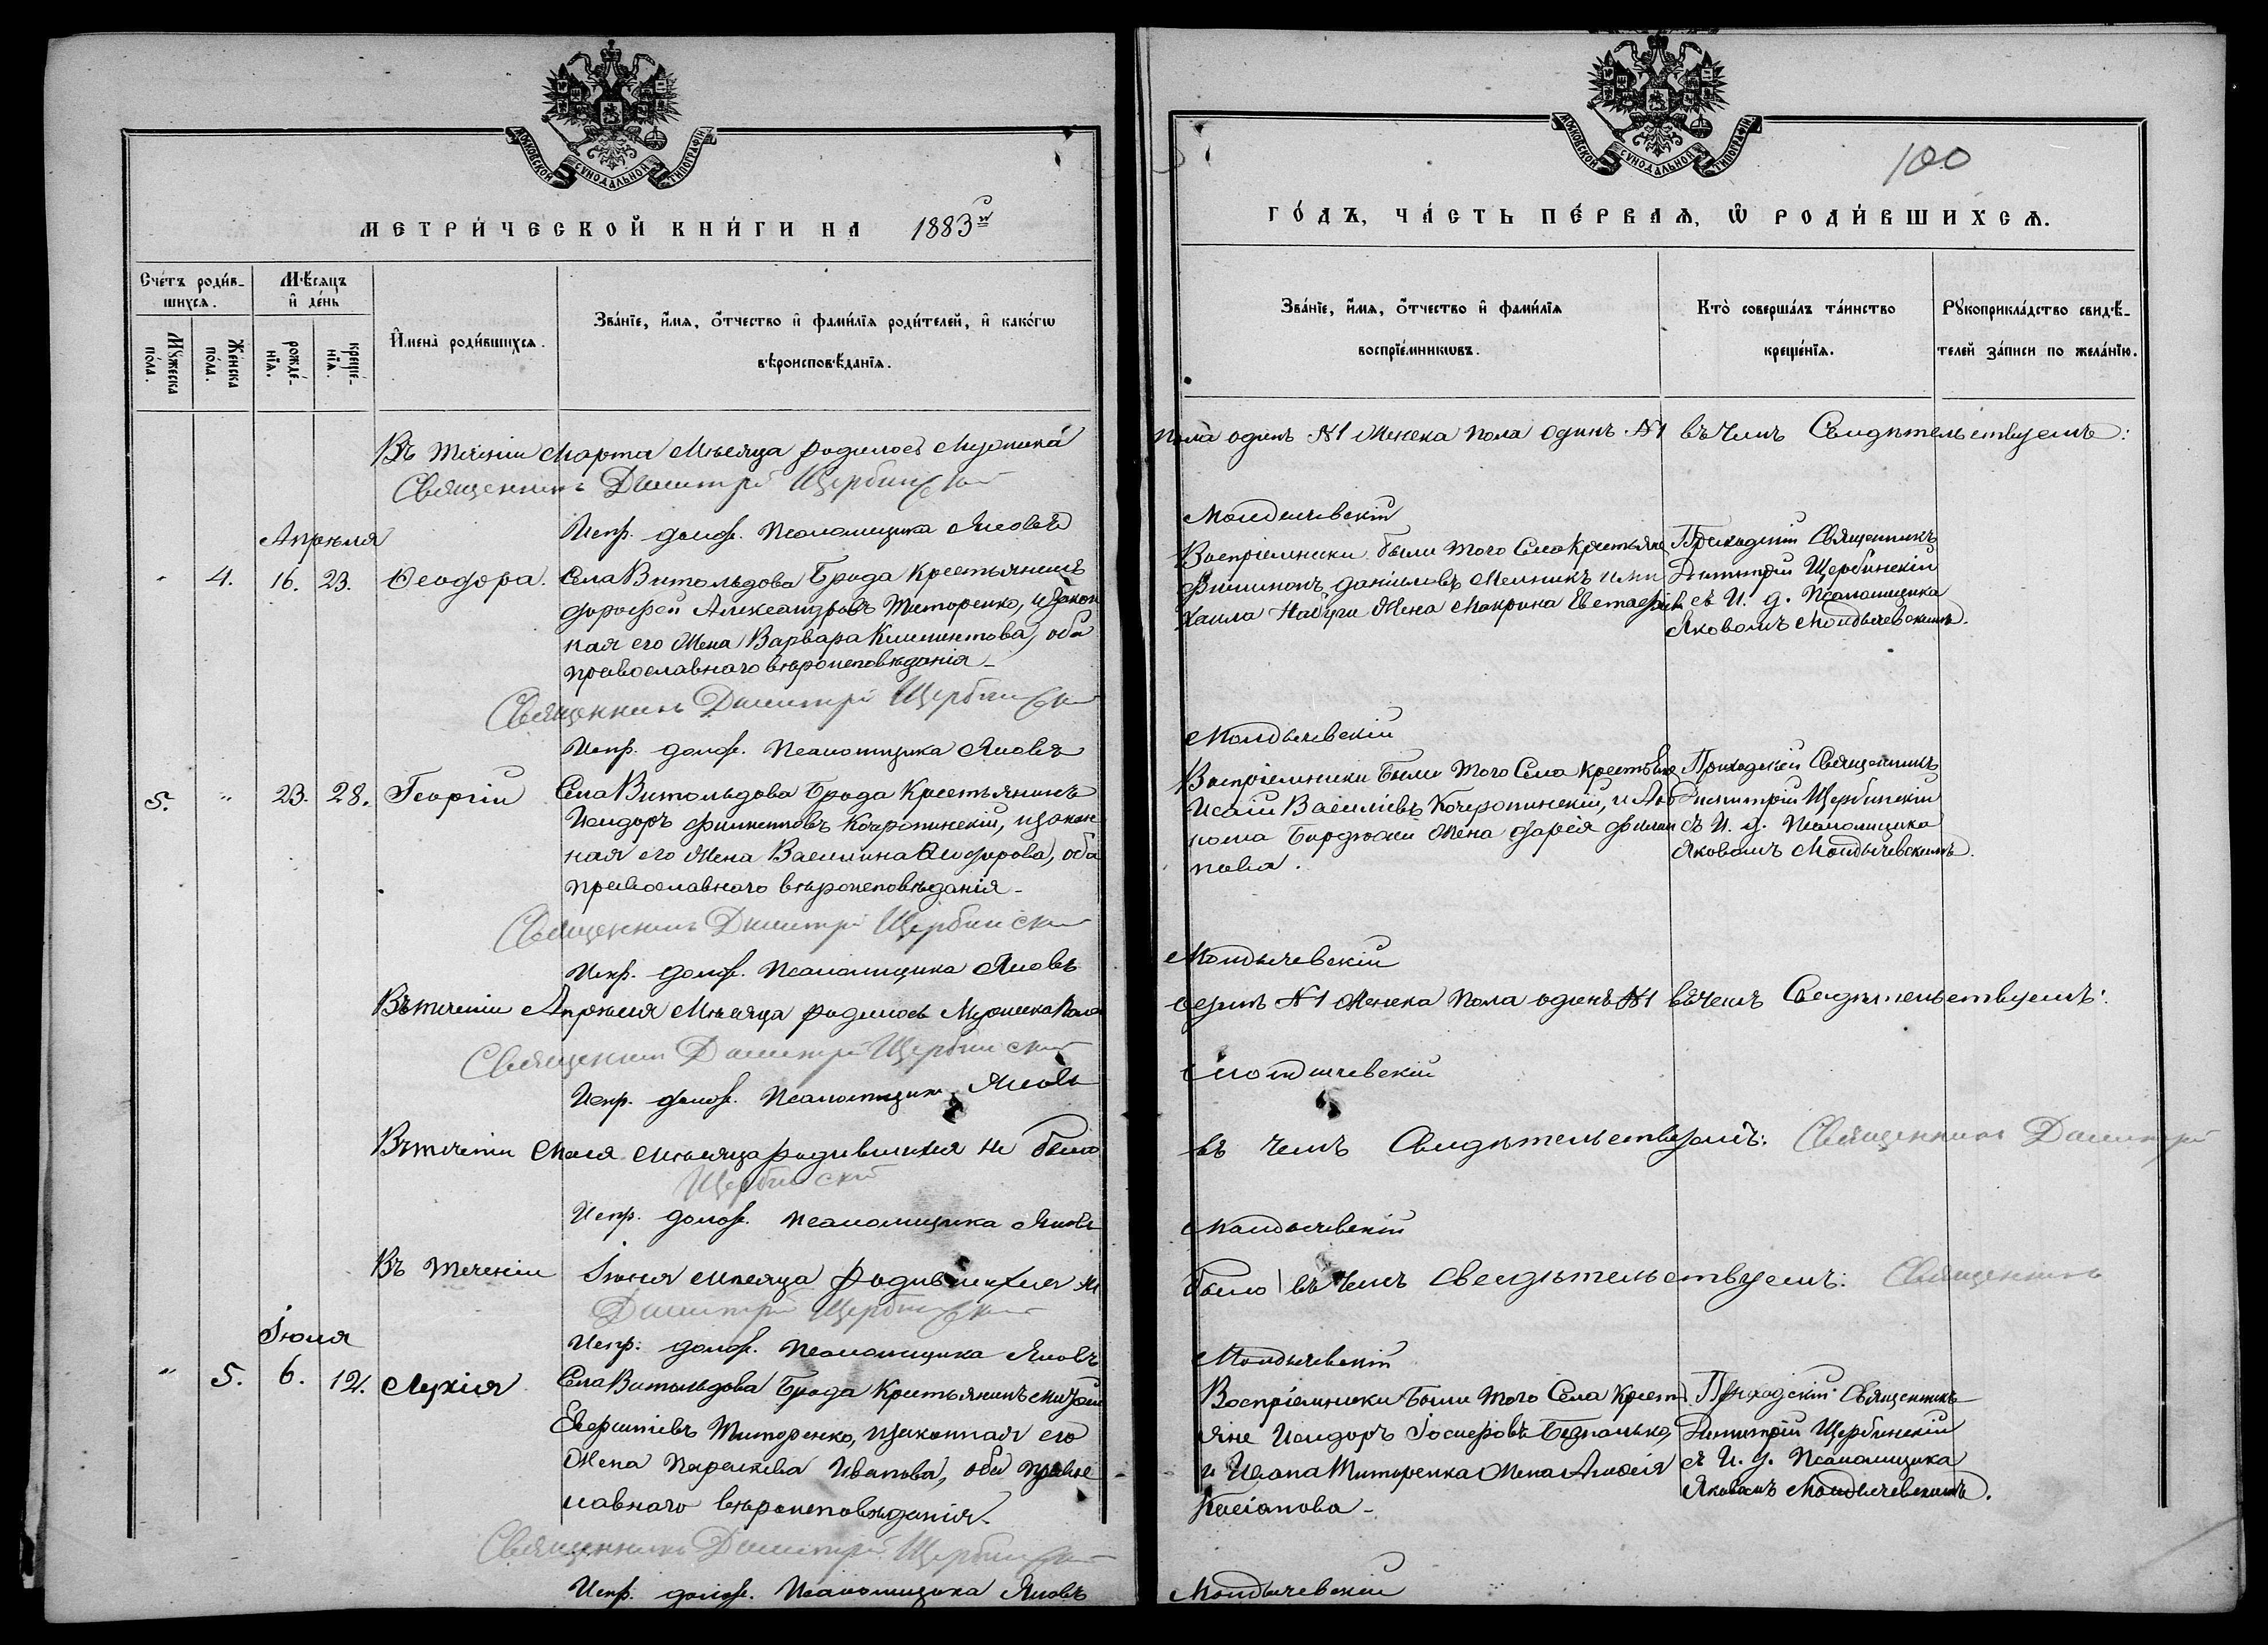 МОСКОВСКОЙ СѴНОДАЛЬНОЙ ТИПОГРАФІИ
МЕТРИ́ЧЕСКОЙ КНИ́ГИ НА 1883
Сче́тъ роди́в-
шихсѧ.
Мꙋ́жеска
по́ла.
Же́нска
по́ла.
Мѣ́сѧцъ
и҆ де́нь
рожде́-
нїѧ.
креще́-
нїѧ.
И҆мена̀ роди́вшихсѧ.
Зва́нїе, и҆́мѧ, о҆́тчество и҆ фами́лїѧ роди́телей, и҆ како́гѡ
вѣроисповѣ́данїѧ.
Въ теченіи Марта Мѣсяца родилось Мужеска
Священникъ Димитрій Щербинскій
Испр. должн. Псаломщика Яковъ
Апрѣля
" 4. 16. 23. Ѳеодора.
Села Витольдова Брода Крестьянинъ
Дорофей Александровъ Титоренко, и закон
ная его Жена Варвара Климентова, оба
православнаго вѣроисповѣданія
Священникъ Димитрій Щербинскій
Испр. должн. Псаломщика Яковъ
5. " 23. 28. Георгій
Села Витольдова Брода Крестьянинъ
Исидоръ Филипповъ Кочеропинскій, и закон
ная его Жена Василина Ѳеодорова, оба
православнаго вѣроисповѣданія
Священникъ Димитрій Щербинскій
Испр. должн. Псаломщика Яковъ
Въ теченіи Апрѣля Мѣсяца родилось Мужеска Пола
Священникъ Димитрій Щербинскій
Испр. должн. Псаломщика Яковъ
Въ теченіи Мая Мѣсяца родившихся не было
Щербинскій
Испр. должн. Псаломщика Яковъ
Въ теченіи Іюня Мѣсяца родившихся не
Димитрій Щербинскій
Испр. должн. Псаломщика Яковъ
Іюля
" 5. 6. 12. Лукія
Села Витольдова Брода Крестьянинъ
Титоренко, и законная его
Жена Параскева Иванова, оба правос
лавнаго вѣроисповѣданія.
Священникъ Димитрій Щербинскій
Испр. должн. Псаломщика Яковъ
МОСКОВСКОЙ СѴНОДАЛЬНОЙ ТИПОГРАФІИ
100
ГО́ДЪ, ЧА́СТЬ ПЕ́РВАѦ, Ѡ҆ РОДИ́ВШИХСѦ.
Зва́нїе, и҆́мѧ, о҆́тчество и҆ фами́лїѧ
воспрїе́мникѡвъ.
Кто̀ соверша́лъ та́инство
креще́нїѧ.
Рꙋкоприкла́дство свидѣ́-
телей за́писи по жела́нїю.
Пола одинъ №1 Женска Пола Одинъ №1 въ чемъ Свидѣтельствуемъ:
Молдычевскій
Воспріемники были того Села Крестьяне
Филимонъ Даніиловъ Мельникъ и Ми
хаила Жена Макрина Евстафіева
Приходскій Священникъ
Димитрій Щербинскій
съ И. д. Псаломщика
Яковомъ Молдычевскимъ.
Молдычевскій
Воспріемники были того Села Крестьяне
Исаія Василіевъ Кочеропинскій, и
Жена Дарія Филип
пова.
Приходскій Священникъ
Димитрій Щербинскій
съ И. д. Псаломщика
Яковомъ Молдычевскимъ.
Молдычевскій
одинъ №1 Женска Пола одинъ №1 въ чемъ Свидѣтельствуемъ:
Молдычевскій
въ чемъ Свидѣтельствуемъ: Священникъ Димитрій
Молдычевскій
было въ чемъ свидѣтельствуемъ: Священникъ
Молдычевскій
Воспріемники были того Села Кресть
яне Исидоръ Іосифовъ Безпалько,
и Ивана Титоренка Жена
Касіанова
Приходскій Священникъ
Димитрій Щербинскій
съ И. д. Псаломщика
Яковомъ Молдычевскимъ.
Молдычевскій